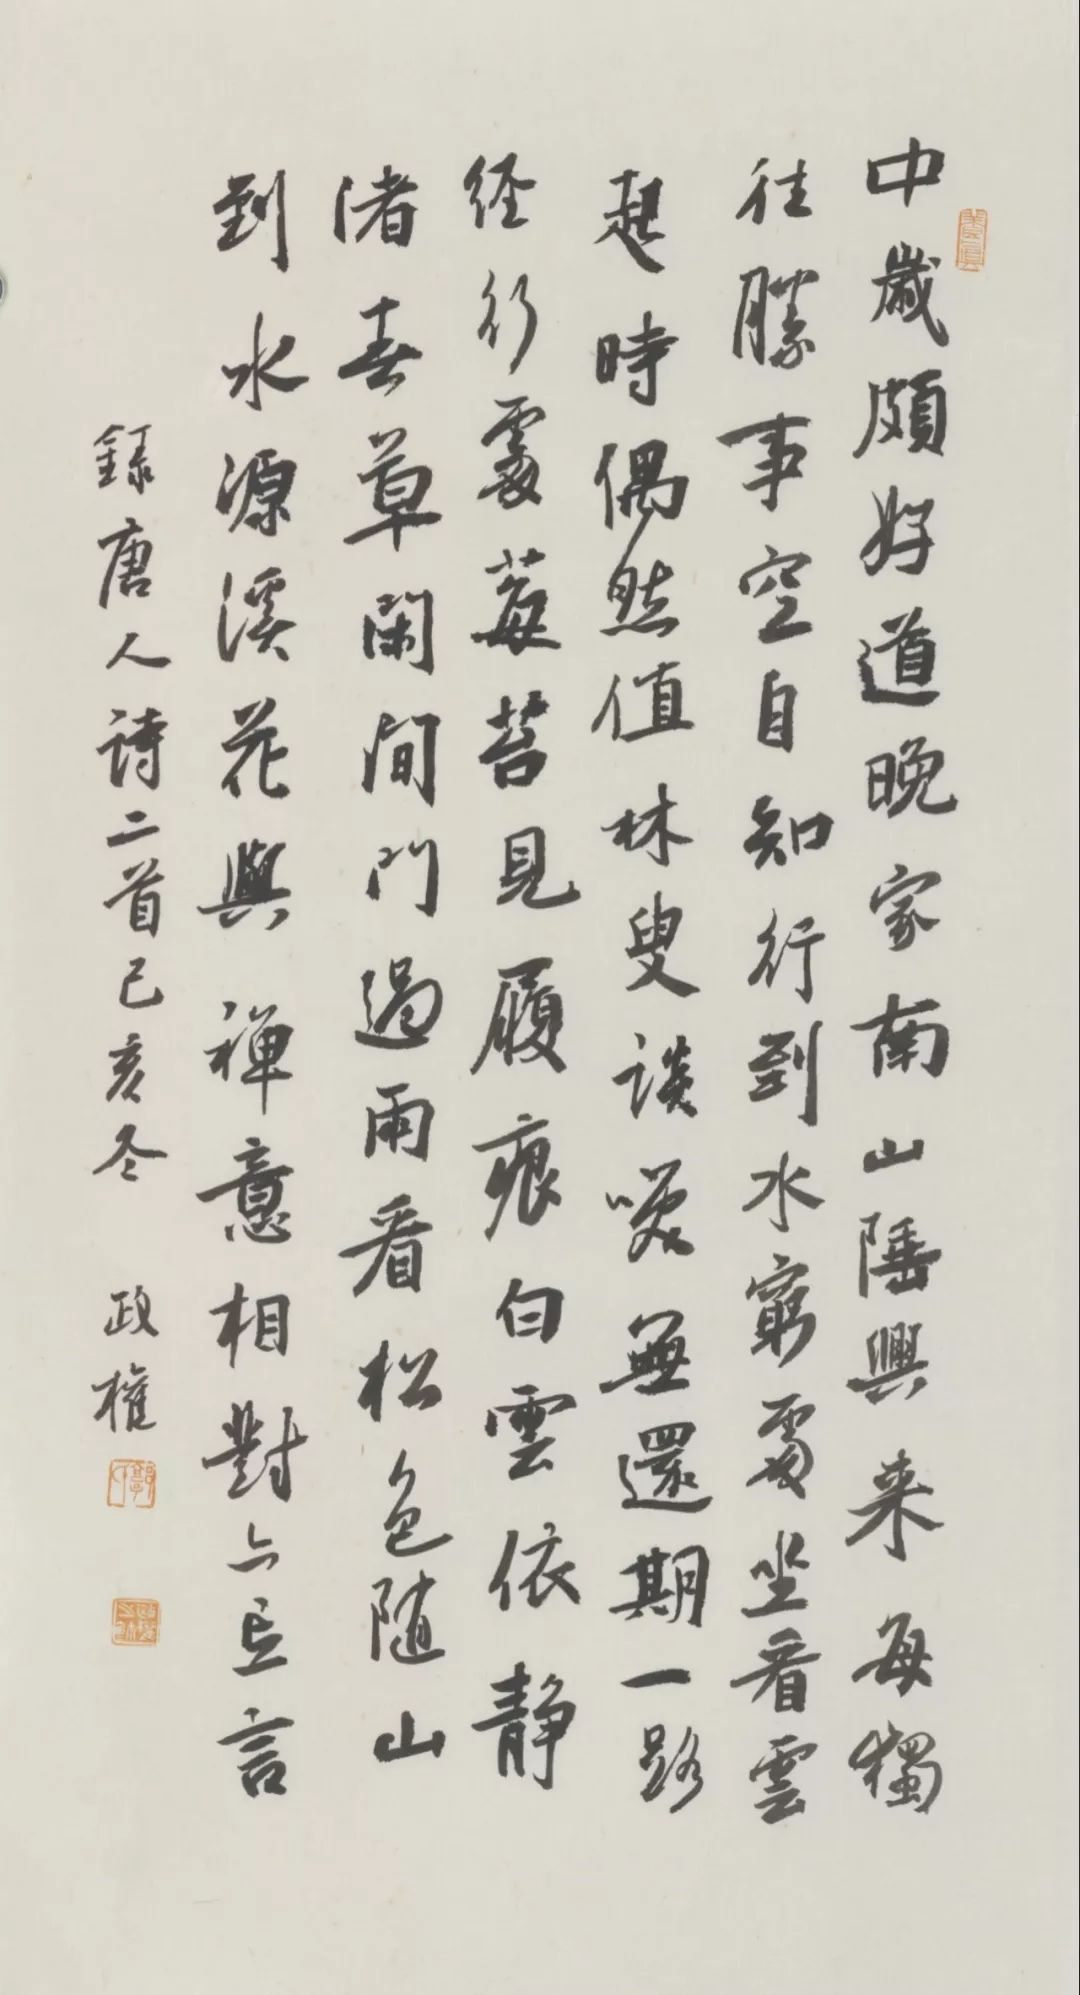 中歲頗好道晚家南山陲興来每獨
往勝事空自知行到水窮處坐看雲
起時偶然值林叟談笑無還期一路
经行處莓苔見履痕白雲依静
渚春草閑閒門過雨看松色随山
到水源溪花與禅意相對亦忘言
録唐人诗二首己亥冬
政權